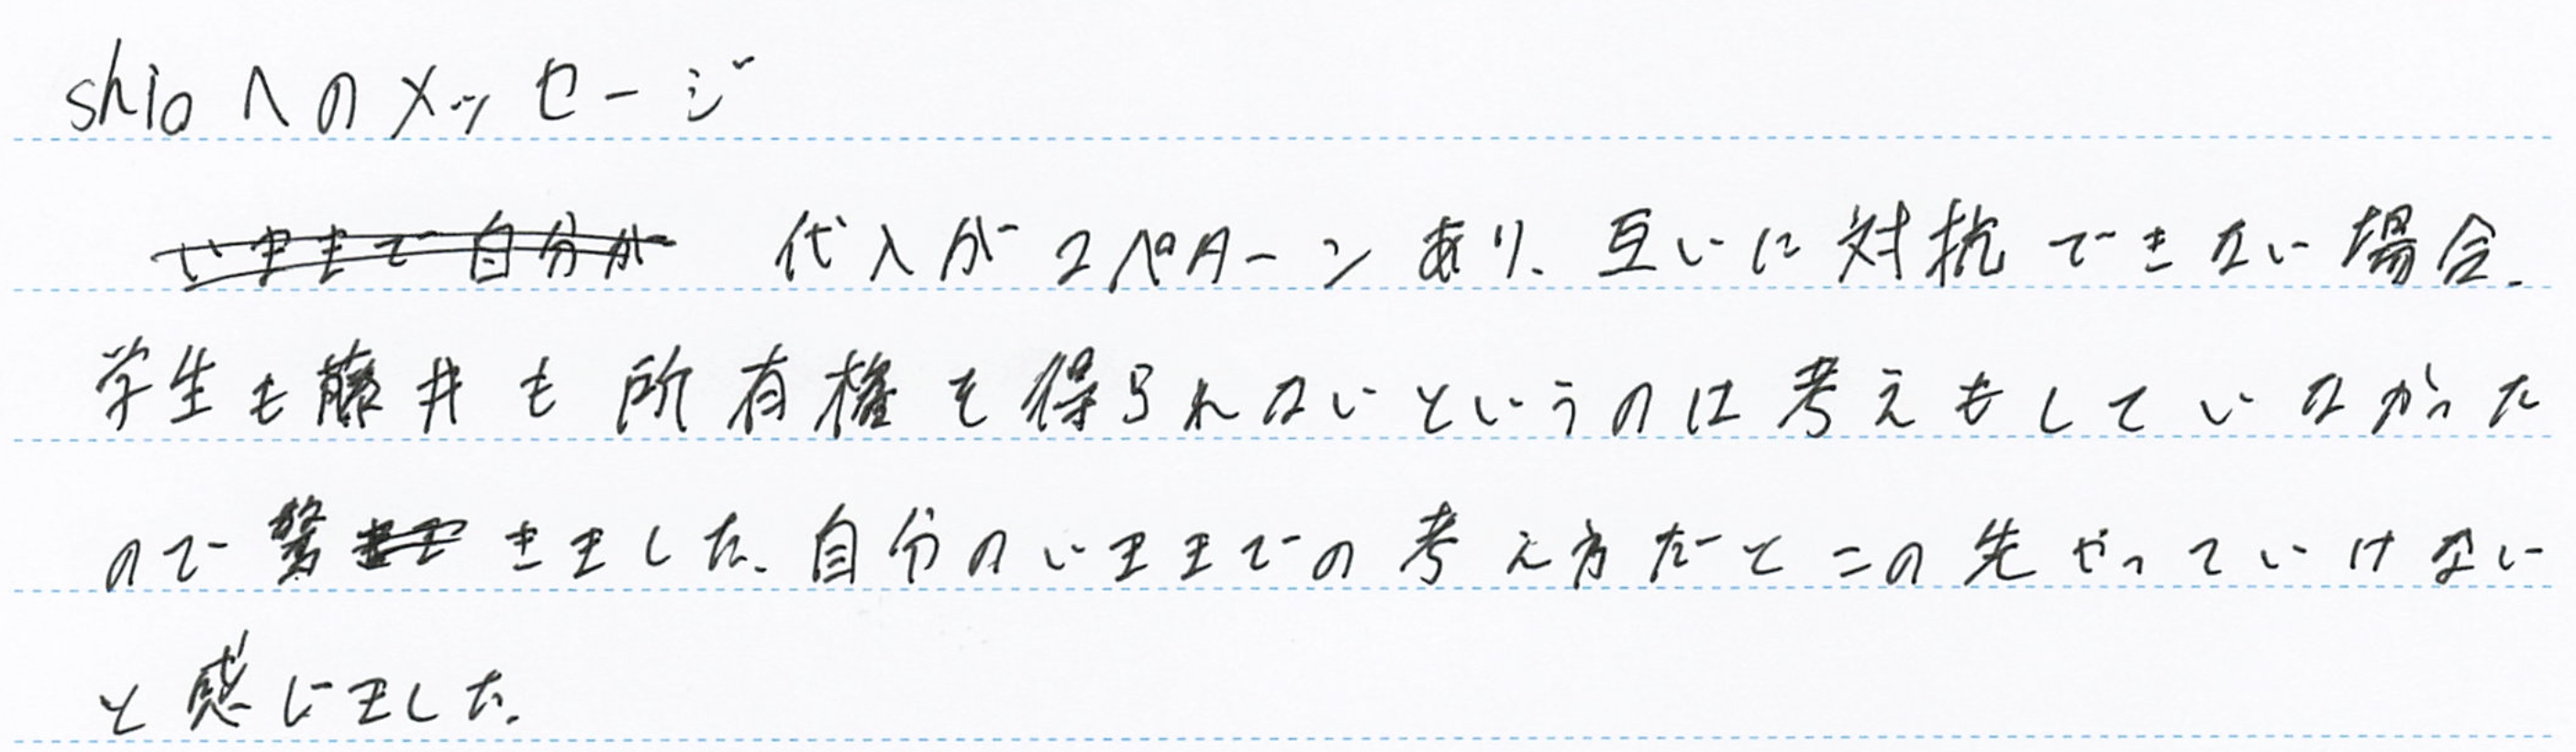 shioへのメッセージ
いままで自分が 代入が2パターンあり、互いに対抗できない場合、
学生も藤井も所有権を得られないというのは考えもしていなかった
ので驚きました。自分のいままでの考え方だとこの先やっていけない
と感じました。